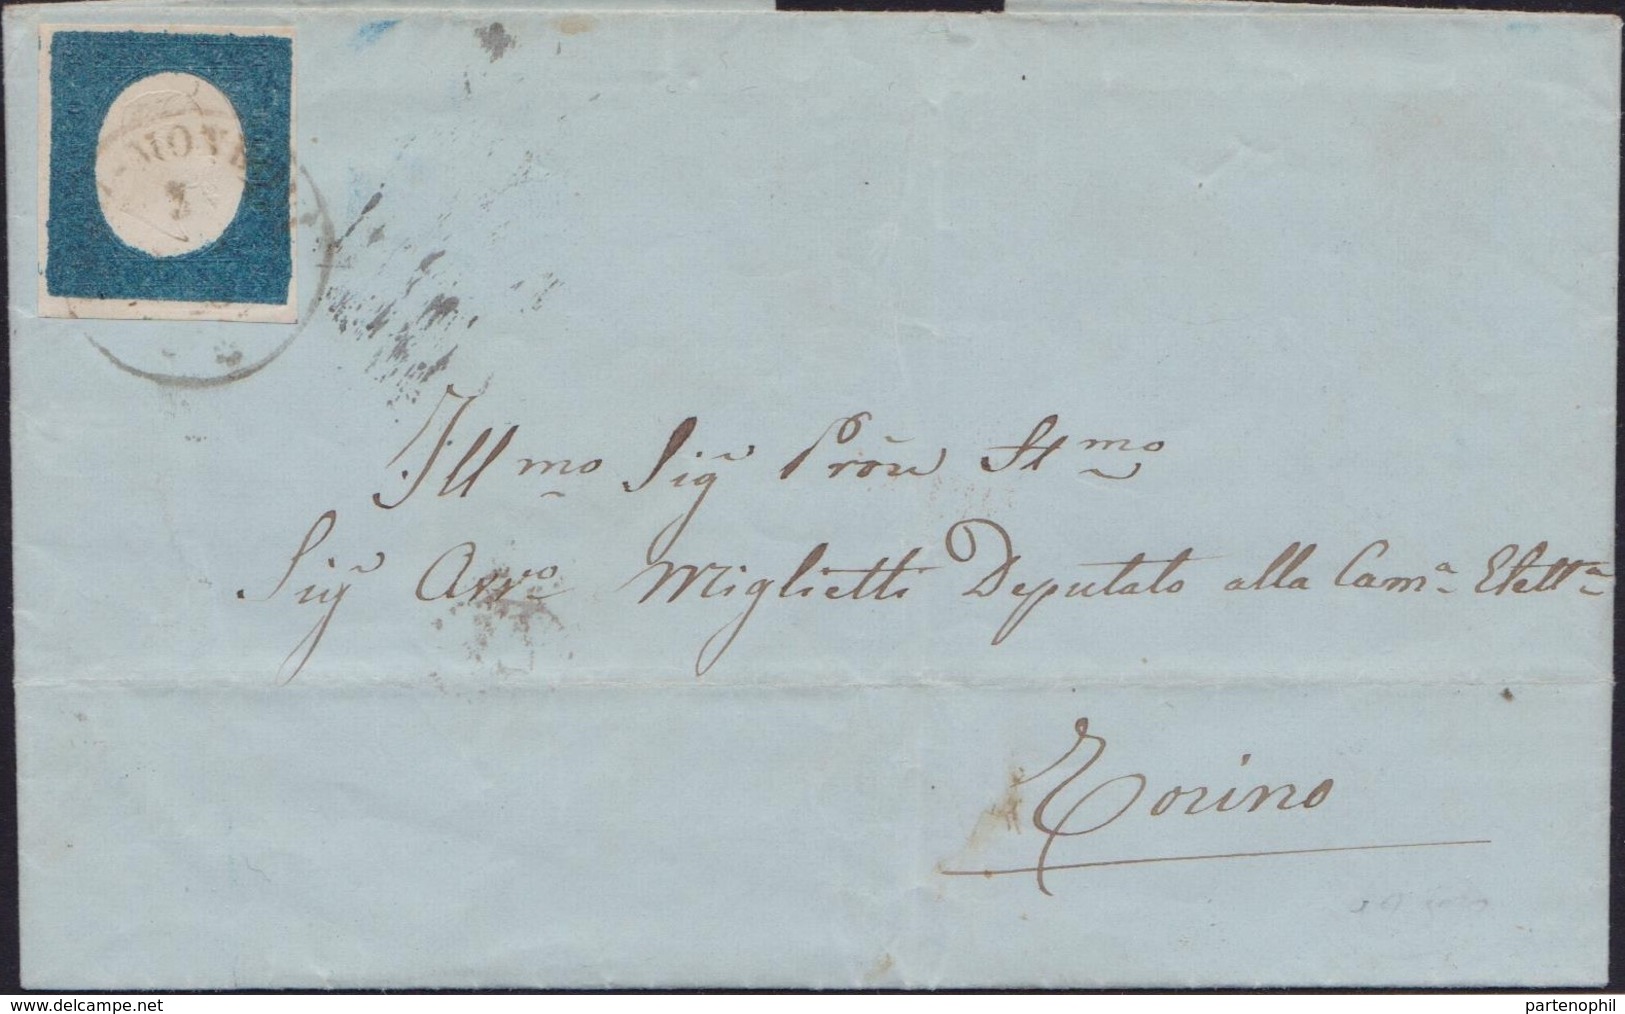 Ill.mo Sig.r Pron St.mo
Sig.r Avv.o Miglietti Deputato alla Cam.a Elett.a
Torino
www.delcampe.net
partenophil